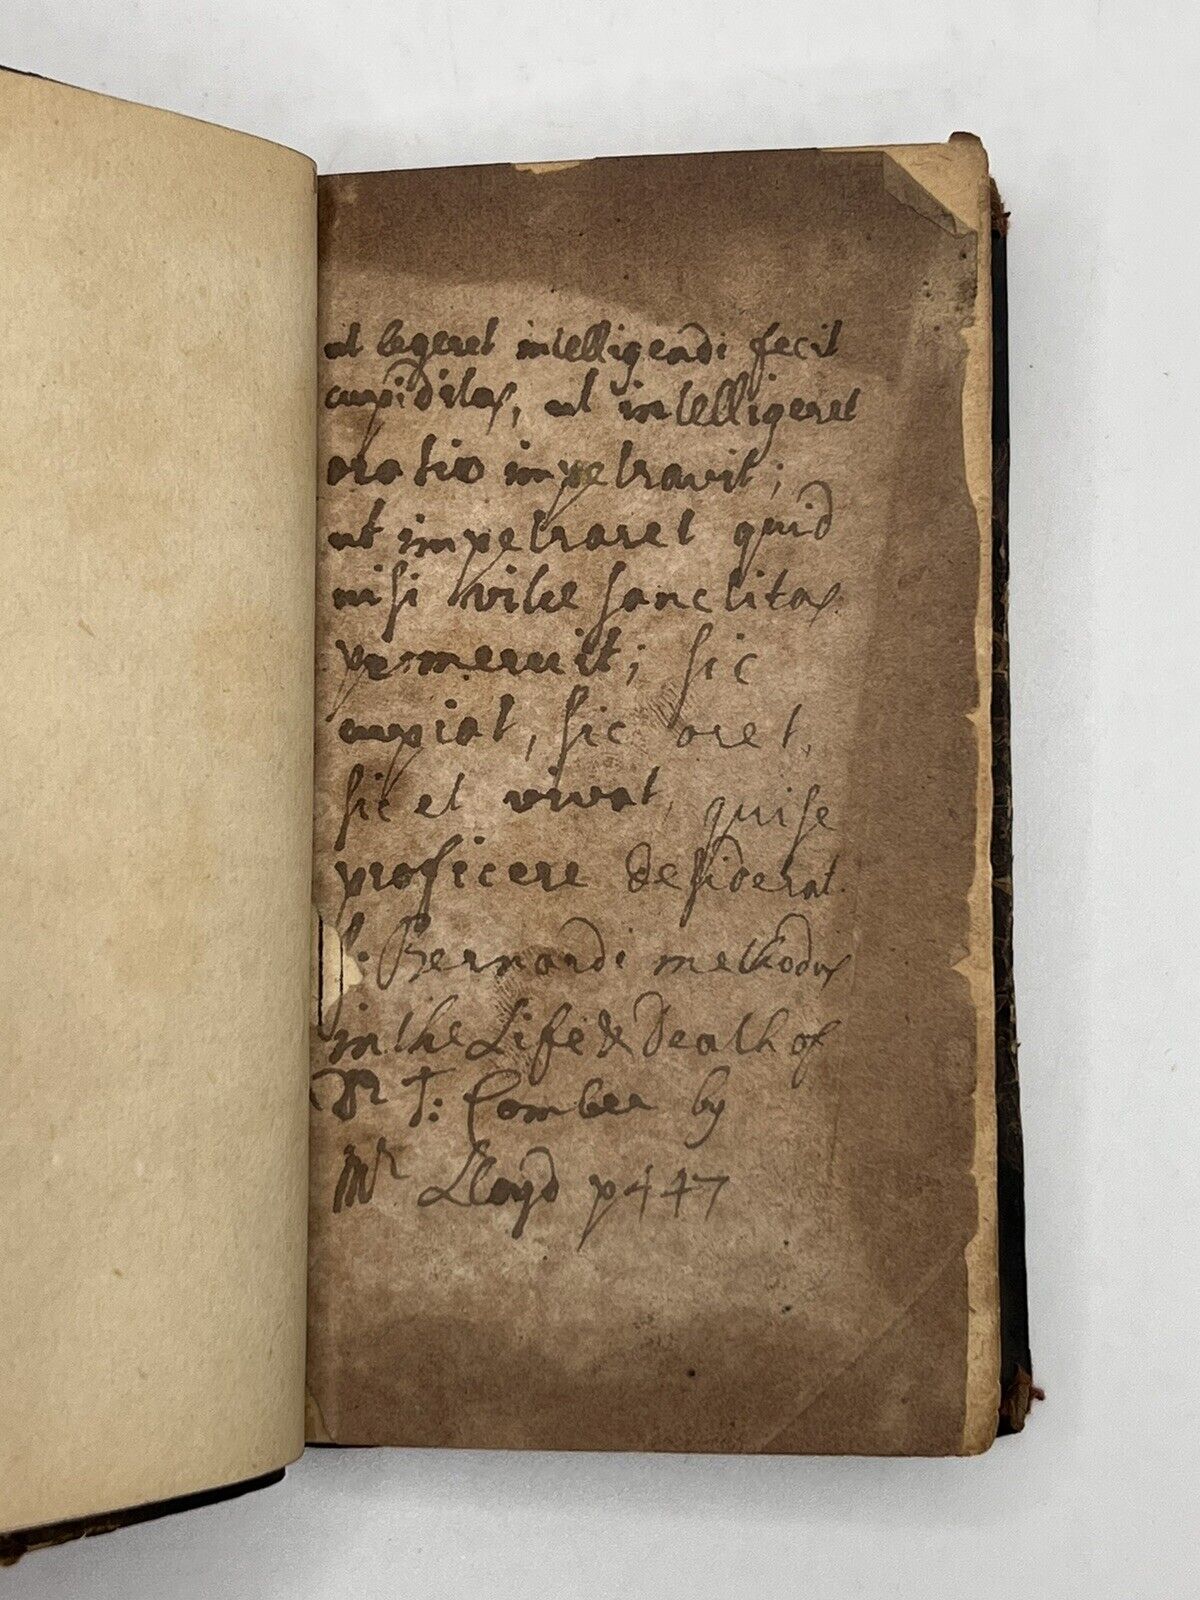 ut legeret intelligendi fecit
cupiditas, ut intelligeret
oratio impetravit;
ut impetraret quid
nisi vitæ sanctitas
promeruit; sic
cupiat, sic oret,
sic et vivat, qui se
proficere desiderat.
S. Bernardi methodus
in the Life & Death of
Dr T: Comber by
Mr Lloyd p 447